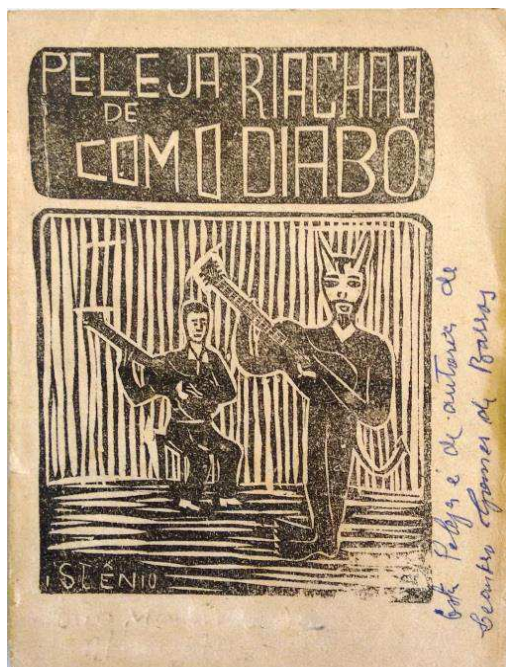 PELEJA RIACHAO
DE
COM O DIABO
STÊNIO
Esta Peleja é de autoria de
Leandro Gomes de Barros